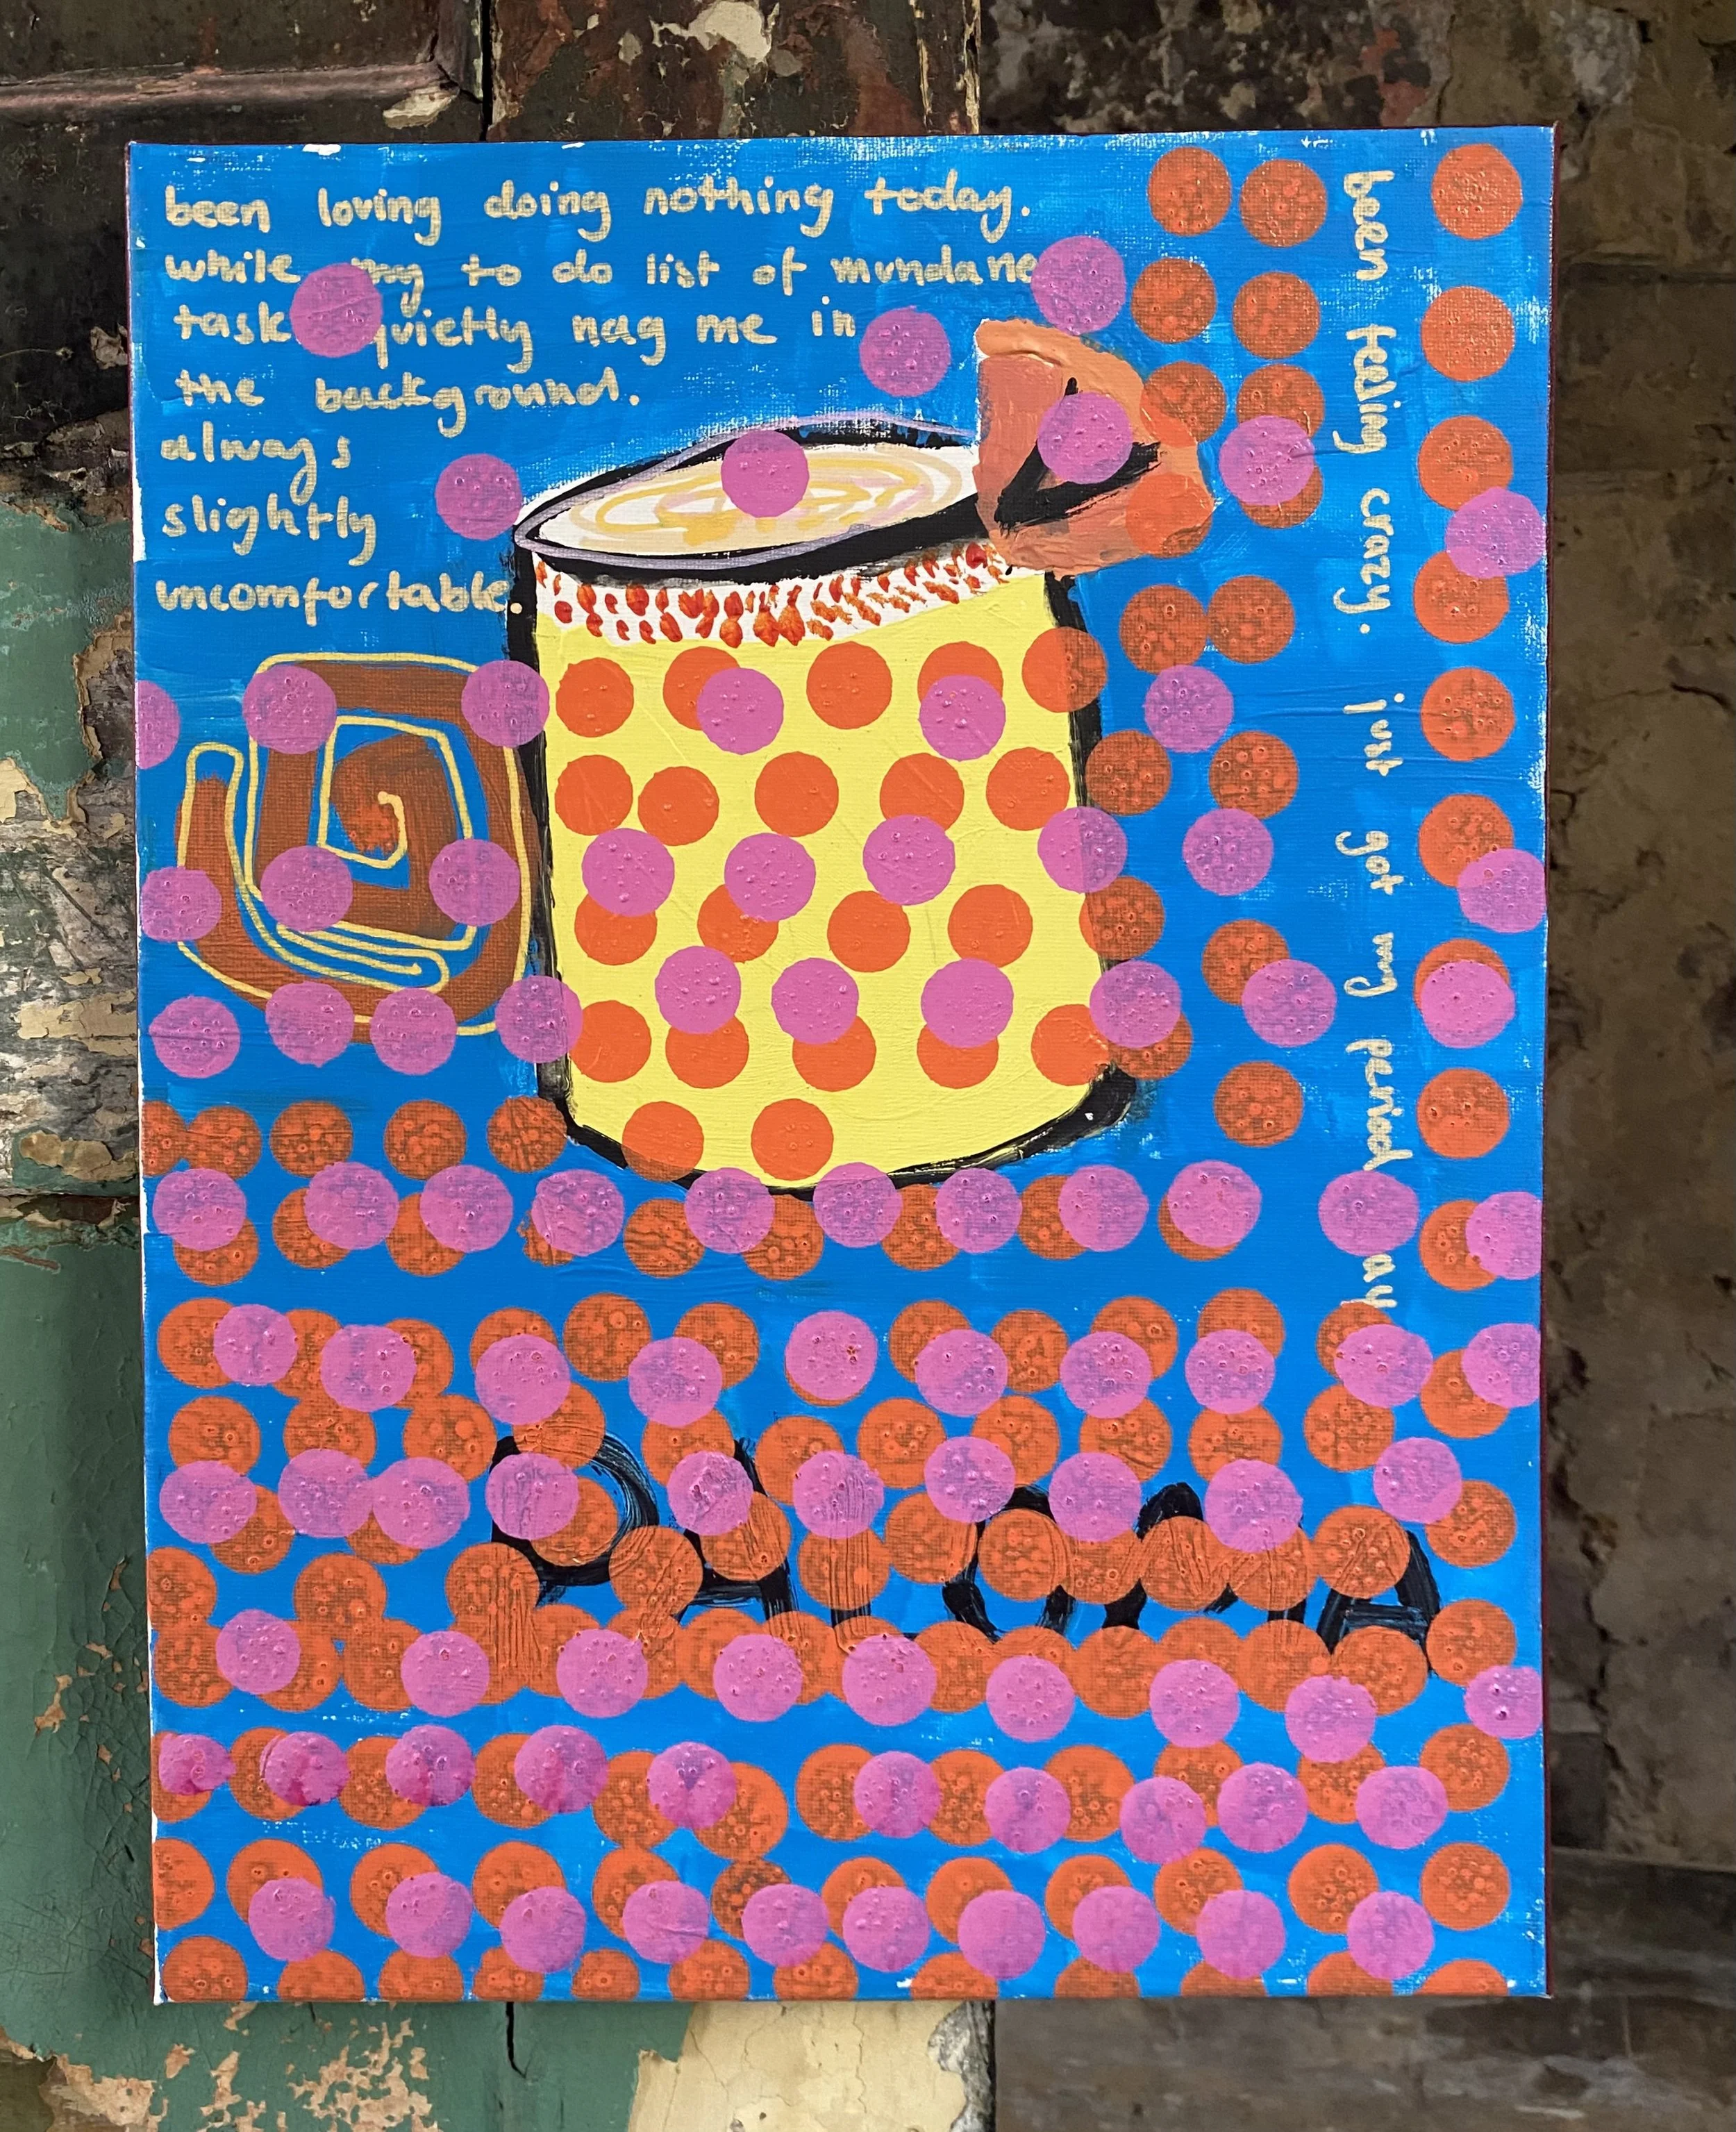 been loving doing nothing today.
while my to do list of mundane
task quietly nag me in
the background.
always
slightly
uncomfortable.
been feeling crazy. just got my period ay
PALOMA